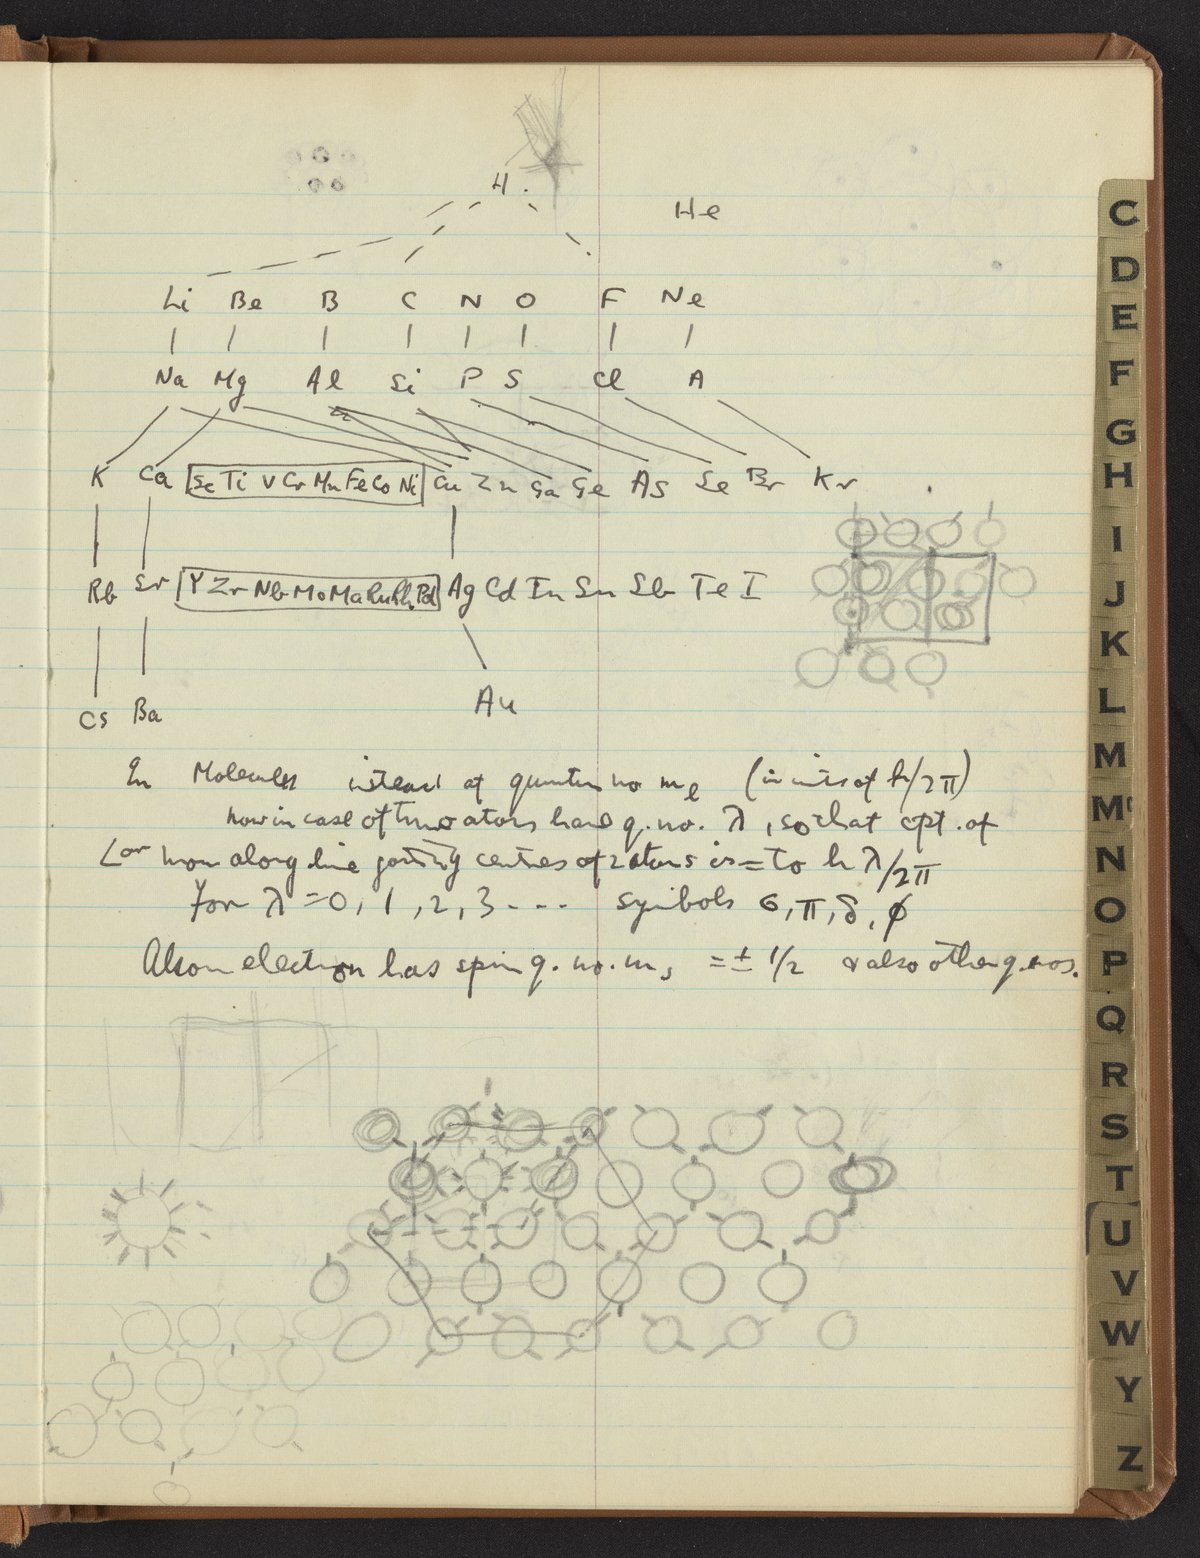 H.
He
Li Be B C N O F Ne
Na Mg Al Si P S Cl A
K Ca Sc Ti V Cr Mn Fe Co Ni Cu Zn Ga Ge As Se Br Kr
Rb Sr Y Zr Nb Mo Ma Ru Rh Pd Ag Cd In Sn Sb Te I
Cs Ba Au
In Molecules instead of quantum no mℓ (in units of h/2π)
now in case of two atoms have q. no. λ, so that cpt. of
mom along line joining centres of 2 atoms is = to h λ/2π
For λ = 0, 1, 2, 3 - - - symbols σ, π, δ, φ
Also electron has spin q. no. ms = ± 1/2 & also other q. nos.
C
D
E
F
G
H
I
J
K
L
M
Mc
N
O
P
Q
R
S
T
U
V
W
Y
Z